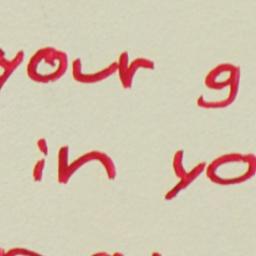 your g
in yo